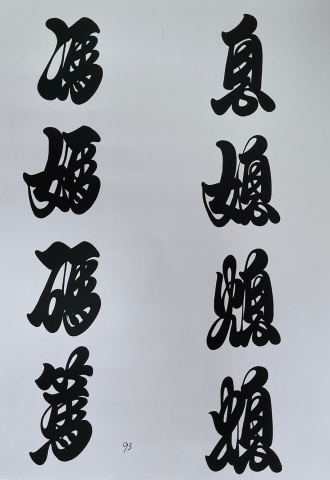 息媳熄
馮媽碼篤
93